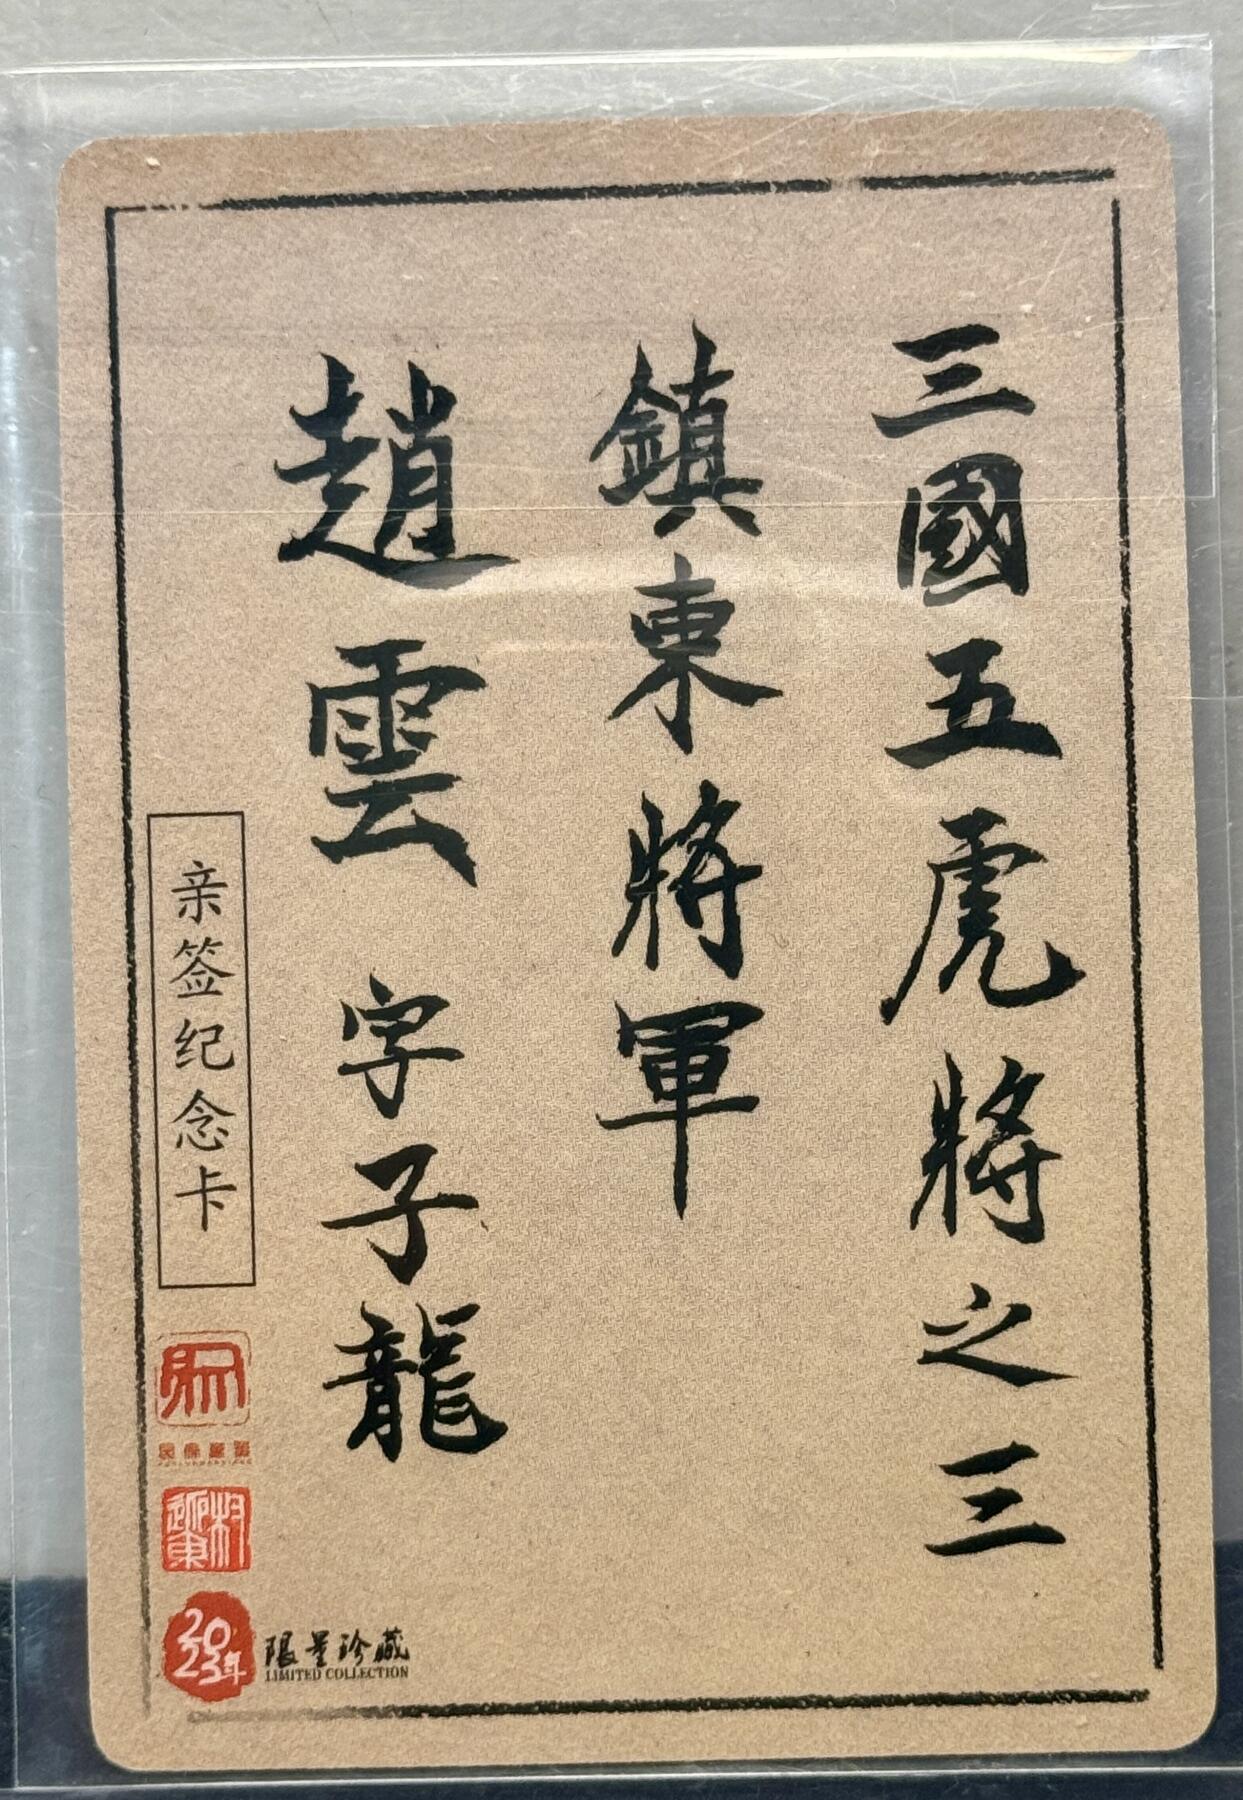 三國五虎將之三
鎮東將軍
趙雲 字子龍
亲签纪念卡
2023年
限量珍藏
LIMITED COLLECTION